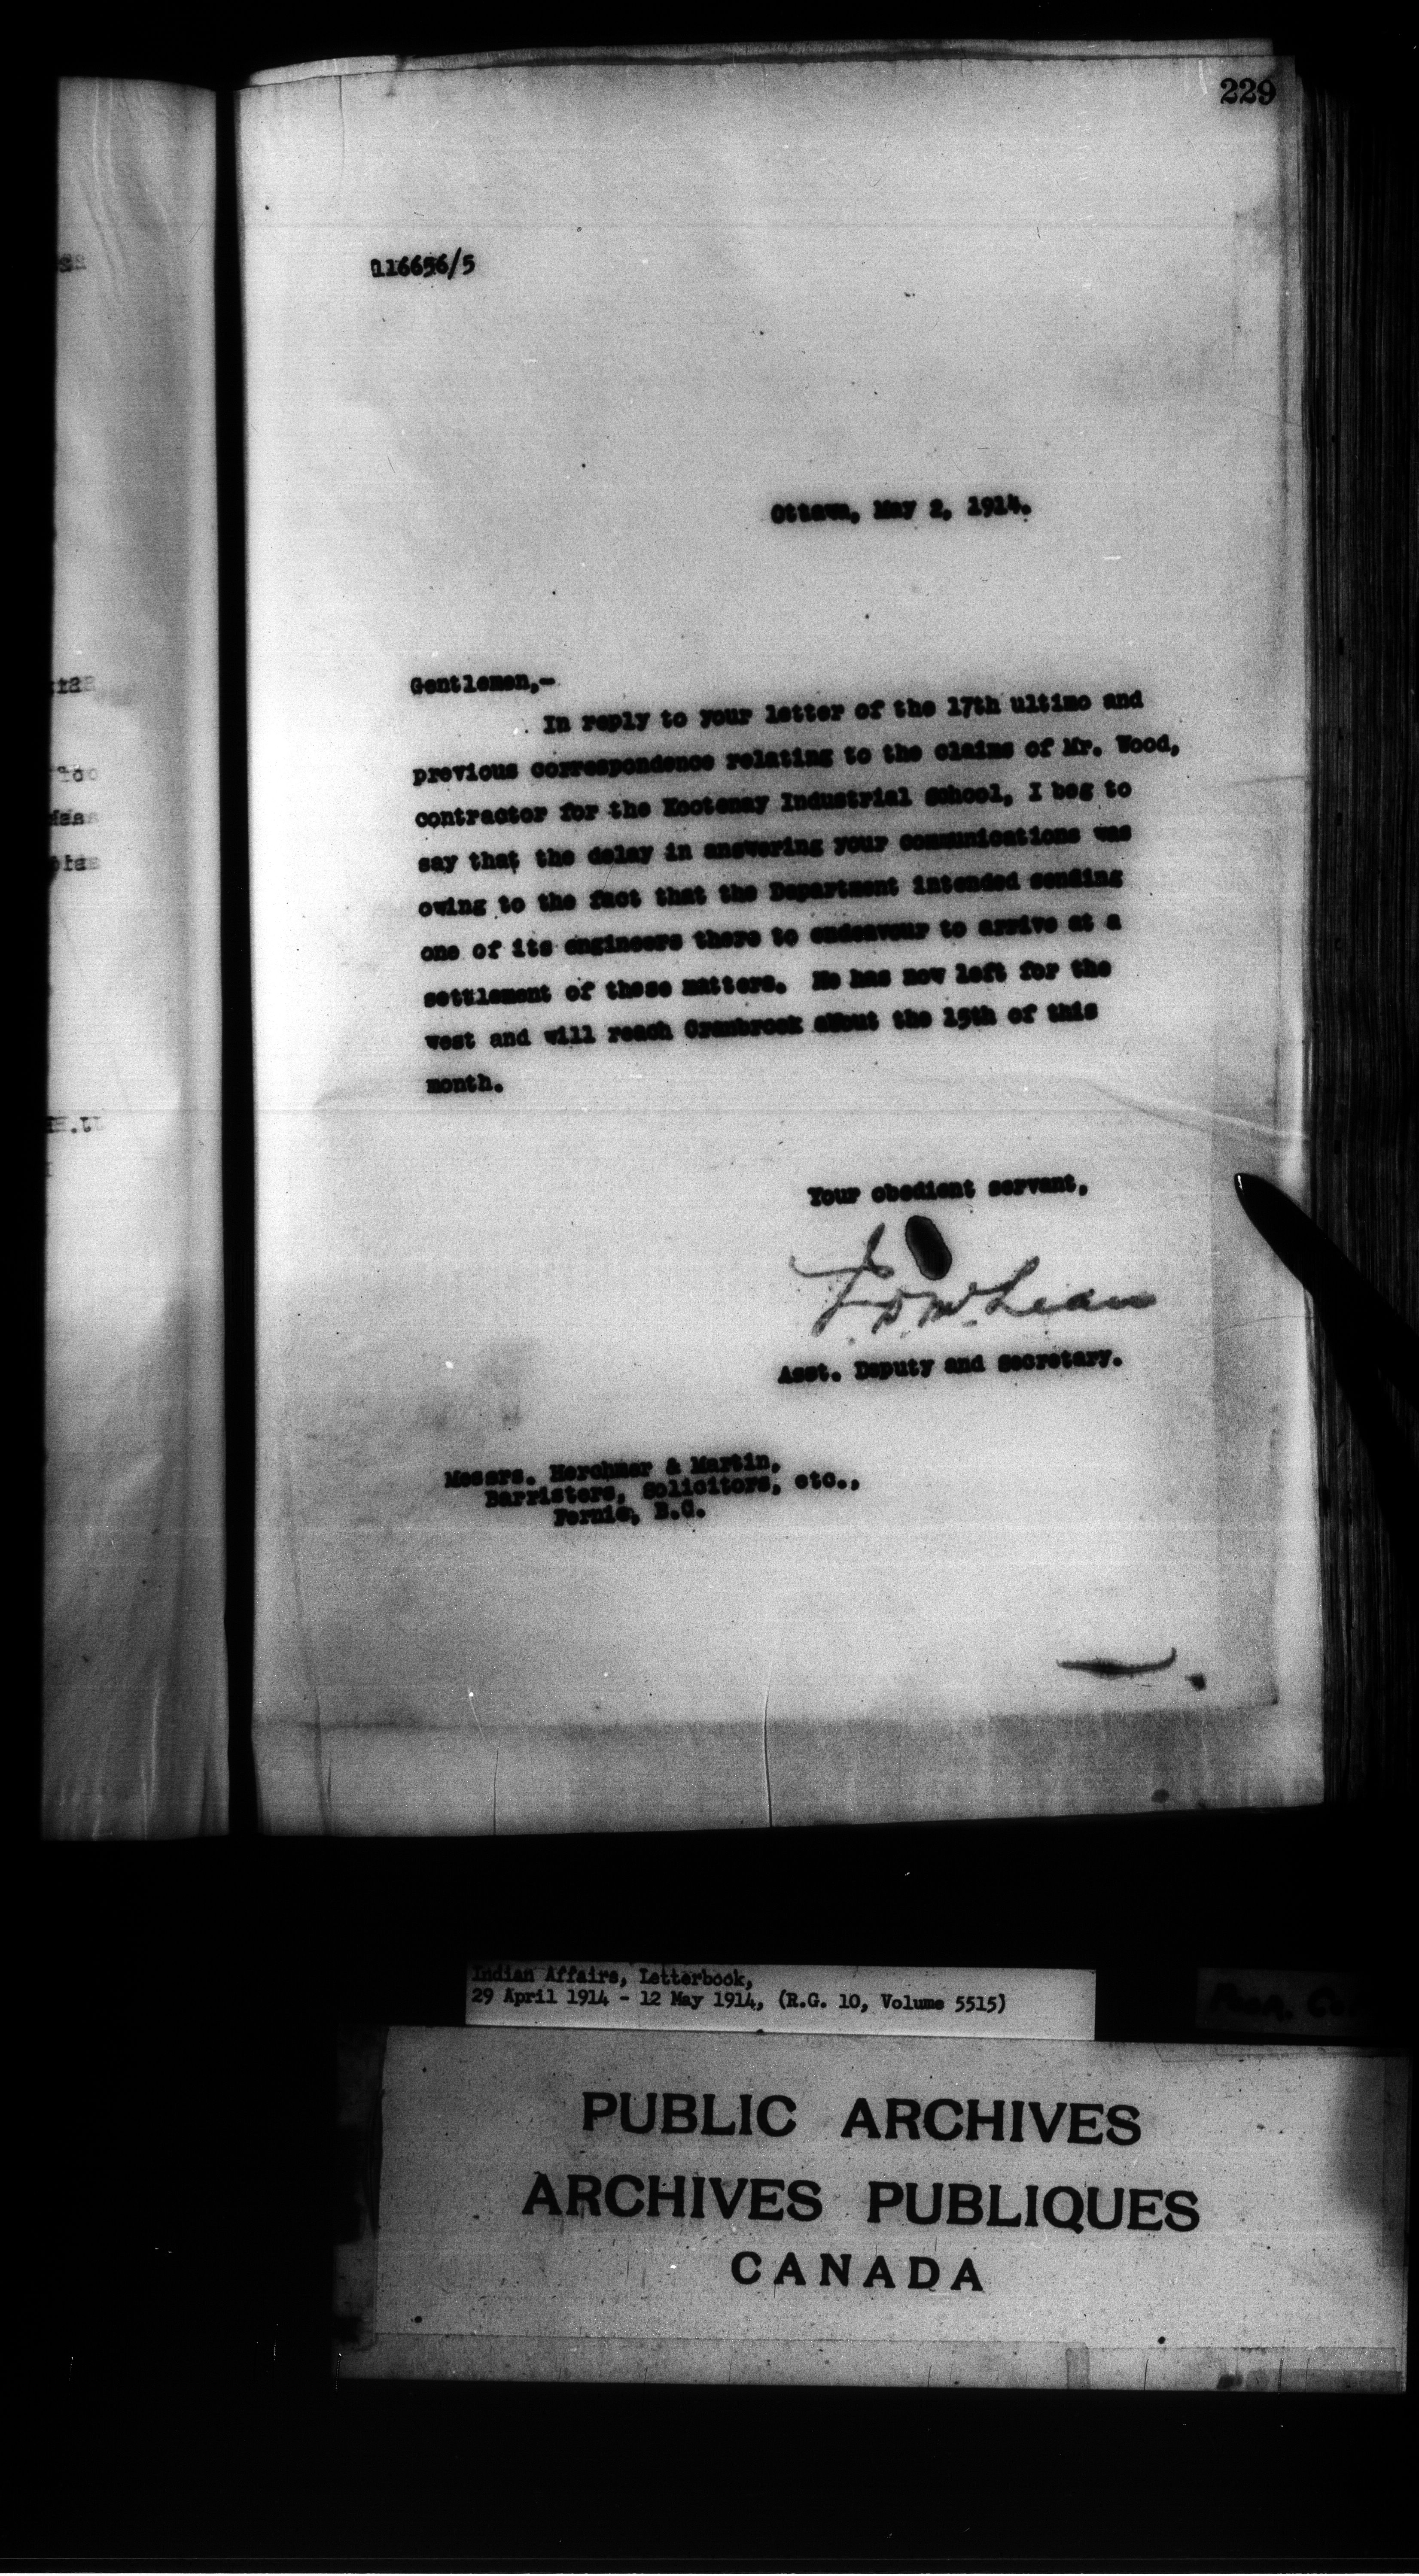 229
116656/5
Ottawa, May 2, 1914.
Gentlemen,-
In reply to your letter of the 17th ultimo and
previous correspondence relating to the claims of Mr. Wood,
contractor for the Kootenay Industrial School, I beg to
say that the delay in answering your communications was
owing to the fact that the Department intended sending
one of its engineers there to endeavour to arrive at a
settlement of these matters. He has now left for the
west and will reach Cranbrook about the 15th of this
month.
Your obedient servant,
J. D. McLean
Asst. Deputy and Secretary.
Messrs. Herchmer & Martin,
Barristers, Solicitors, etc.,
Fernie, B.C.
Indian Affairs, Letterbook,
29 April 1914 - 12 May 1914, (R.G. 10, Volume 5515)
PUBLIC ARCHIVES
ARCHIVES PUBLIQUES
CANADA